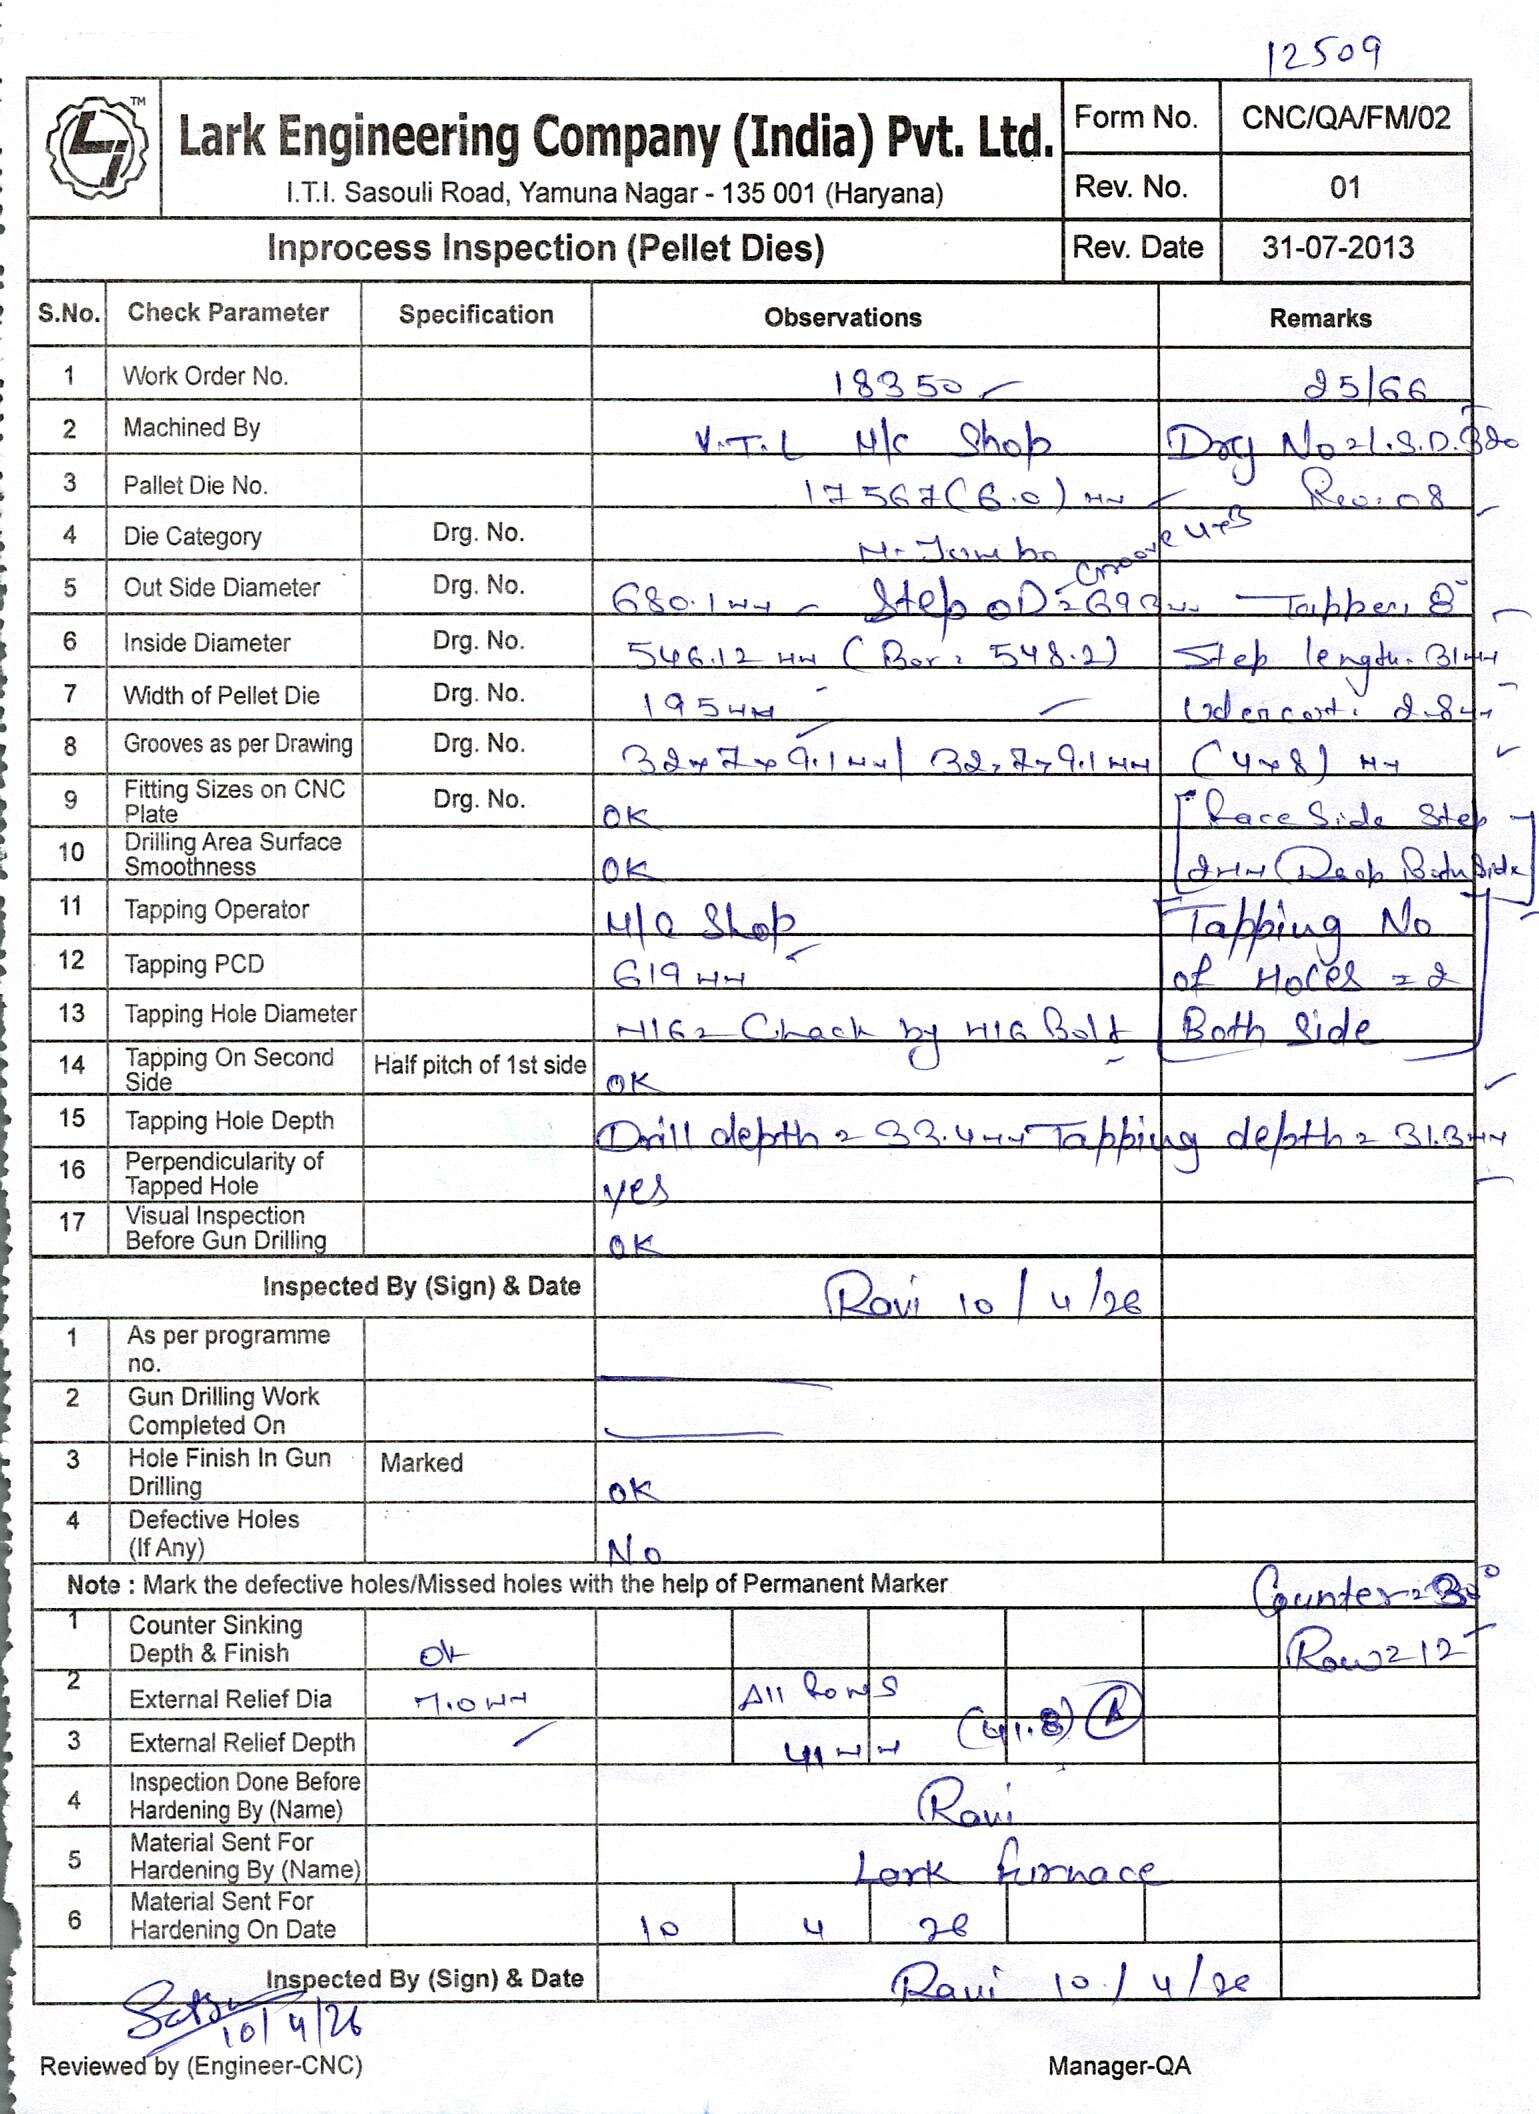 12509
TM
Lark Engineering Company (India) Pvt. Ltd.
I.T.I. Sasouli Road, Yamuna Nagar - 135 001 (Haryana)
Form No. CNC/QA/FM/02
Rev. No. 01
Inprocess Inspection (Pellet Dies) Rev. Date 31-07-2013
S.No. Check Parameter Specification Observations Remarks
1 Work Order No. 18350 25/66
2 Machined By V.T.L M/C Shop Drg No = L.S.D.320
3 Pallet Die No. 17567 (6.0) mm Rev. 08
4 Die Category Drg. No. M. Jumbo Groove 4x3
5 Out Side Diameter Drg. No. 680.1 mm Step OD = 693 mm Tapper. 8°
6 Inside Diameter Drg. No. 546.12 mm (Bor = 548.2) Step length. 31 mm
7 Width of Pellet Die Drg. No. 195 mm 2.8 mm
8 Grooves as per Drawing Drg. No. 32x7x9.1 mm / 32x7x9.1 mm (4x8) mm
9 Fitting Sizes on CNC Plate Drg. No. OK Race Side Step
10 Drilling Area Surface Smoothness OK 2 mm Deep Both Side
11 Tapping Operator M/C Shop Tapping No
12 Tapping PCD 619 mm of Holes = 2
13 Tapping Hole Diameter M16 = Chack by M16 Bolt Both Side
14 Tapping On Second Side Half pitch of 1st side OK
15 Tapping Hole Depth Drill depth = 33.4 mm Tapping depth = 31.3 mm
16 Perpendicularity of Tapped Hole yes
17 Visual Inspection Before Gun Drilling OK
Inspected By (Sign) & Date Ravi 10/4/26
1 As per programme no.
2 Gun Drilling Work Completed On
3 Hole Finish In Gun Drilling Marked OK
4 Defective Holes (If Any) No
Note : Mark the defective holes/Missed holes with the help of Permanent Marker Counter = 30°
1 Counter Sinking Depth & Finish OK Row = 12
2 External Relief Dia 7.0 mm All Rows
3 External Relief Depth 41 mm (41.8) A
4 Inspection Done Before Hardening By (Name) Ravi
5 Material Sent For Hardening By (Name) Lark furnace
6 Material Sent For Hardening On Date 10 4 26
Inspected By (Sign) & Date Ravi 10/4/26
10/4/26
Reviewed by (Engineer-CNC) Manager-QA